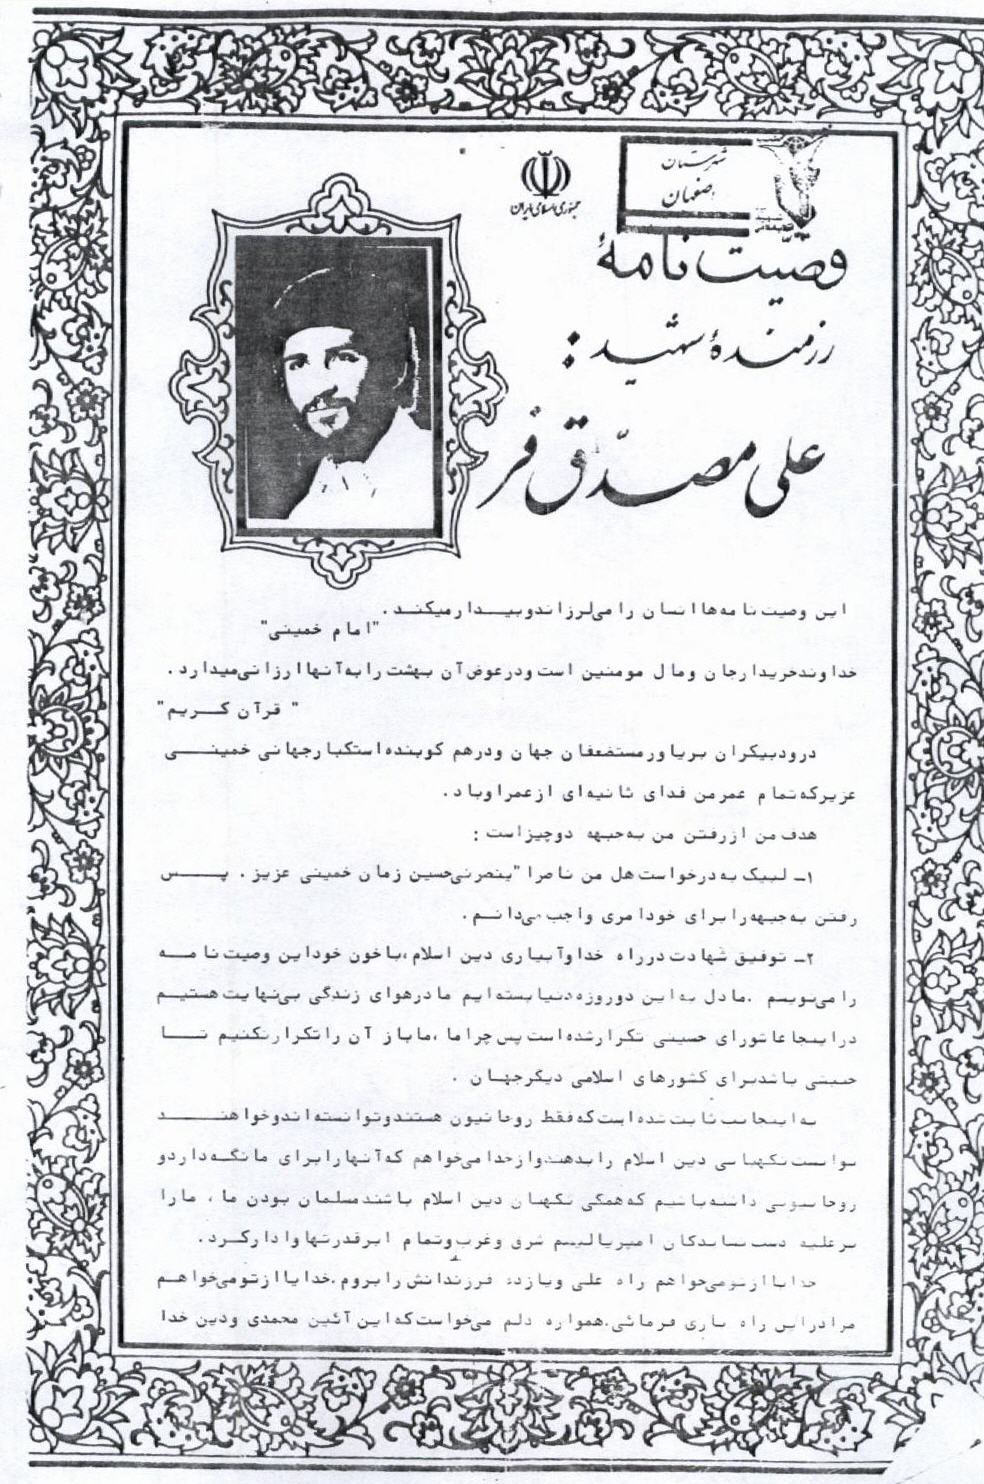 شهرستان
اصفهان
جمهوری اسلامی ایران
وصیت نامهٔ
رزمندهٔ شهید :
علی مصدّق فر
این وصیت نامه‌ها انسان را می‌لرزاند و بیدار میکند .
"امام خمینی"
خداوند خریدار جان و مال مومنین است و در عوض آن بهشت را به آنها ارزانی میدارد .
" قرآن کریم"
درود بیکران بر یاور مستضعفان جهان و درهم کوبنده استکبار جهانی خمینی
عزیز که تمام عمر من فدای ثانیه‌ای از عمر او باد .
هدف من از رفتن من به جبهه دو چیز است :
۱ــ لبیک به درخواست هل من ناصرا" ینصرنی حسین زمان خمینی عزیز . پس
رفتن به جبهه را برای خود امری واجب می‌دانم .
۲ــ توفیق شهادت در راه خدا و آبیاری دین اسلام ، با خون خود این وصیت نامه
را می‌نویسم . ما دل به این دو روزه دنیا بسته‌ایم ما در هوای زندگی بی‌نهایت هستیم
در اینجا عاشورای حسینی تکرار شده است پس چرا ما ، ما باز آن را تکرار نکنیم تا
باشد برای کشورهای اسلامی دیگر جهان .
به اینجانب ثابت شده است که فقط روحانیون هستند و توانسته‌اند و خواهند
توانست نگهبانی دین اسلام را بدهند و از خدا می‌خواهم که آنها را برای ما نگه دارد و
روحانیونی داشته باشیم که همگی نگهبان دین اسلام باشند مسلمان بودن ما ، ما را
بر علیه دست نشاندگان امپریالیسم شرق و غرب و تمام ابرقدرتها وادار کرد .
خدایا از تو می‌خواهم راه علی و یازده فرزندانش را بروم . خدایا از تو می‌خواهم
مرا در این راه یاری فرمائی . همواره دلم می‌خواست که این آئین محمدی و دین خدا